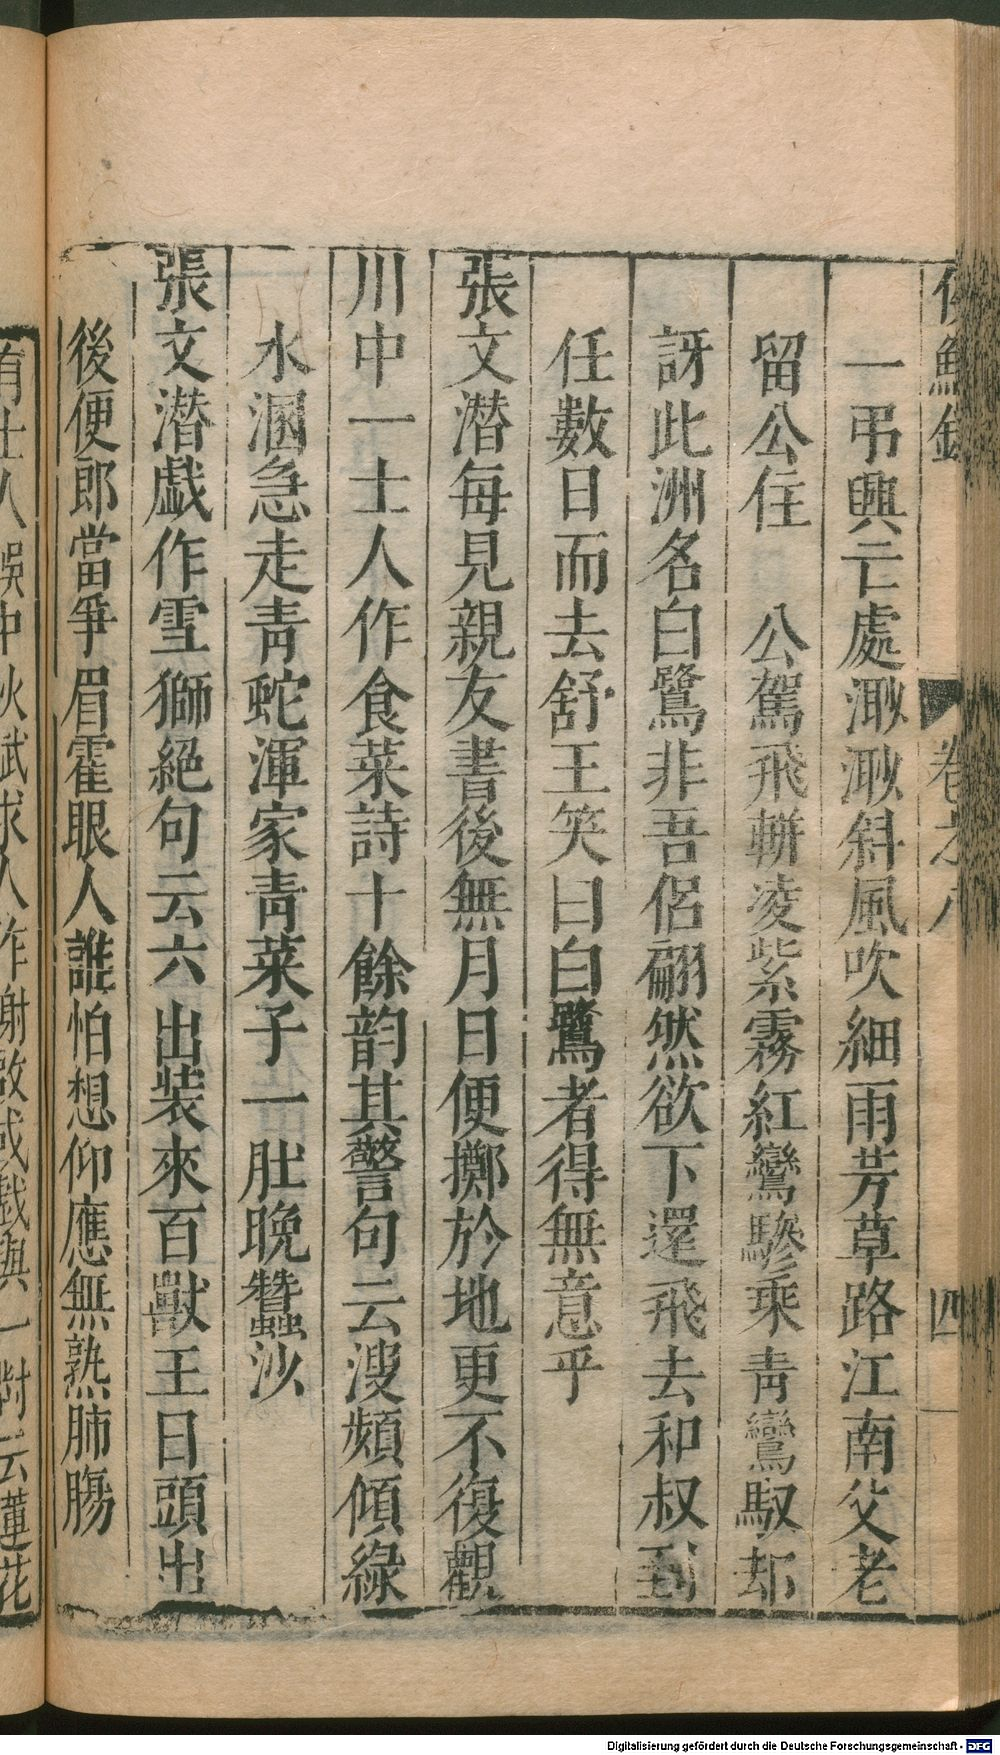 侯鯖錄 卷之八 四
一弔興亡處渺渺斜風吹細雨芳草路江南父老
留公住 公駕飛軿凌紫霧紅鸞驂乘青鸞馭却
訝此洲名白鷺非吾侶翩然欲下還飛去和叔到
任數日而去舒王笑曰白鷺者得無意乎
張文潛每見親友書後無月日便擲於地更不復觀
川中一士人作食菜詩十餘韵其警句云溲頻傾綠
水溷急走青蛇渾家青菜子一肚晚蠶沙
張文潛戯作雪獅絕句云六出裝來百獸王日頭出
後便郎當爭眉霍眼人誰怕想仰應無熟肺腸
有士人誤中秋試求人作謝啟或戯與一對云蓮花
Digitalisierung gefördert durch die Deutsche Forschungsgemeinschaft - DFG